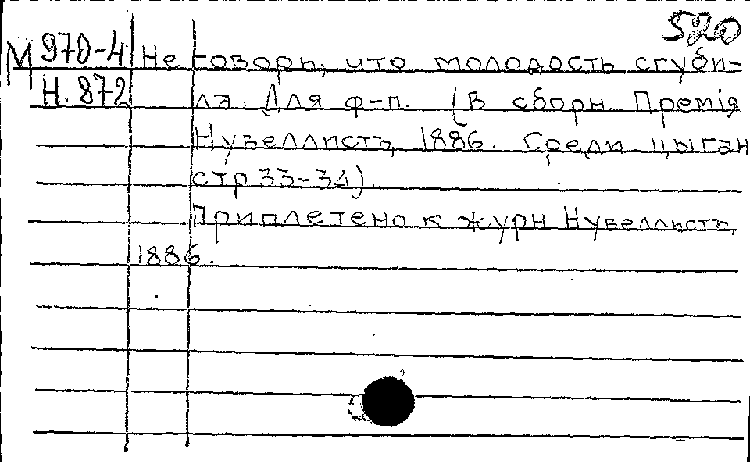 520
М 970-4 Не говори, что молодость сгуби-
Н. 872 ла. Для ф-п. (В сборн Премія
Нувеллистъ, 1886. Среди цыган
стр 33-34)
Приплетено к журн Нувеллистъ,
1886.